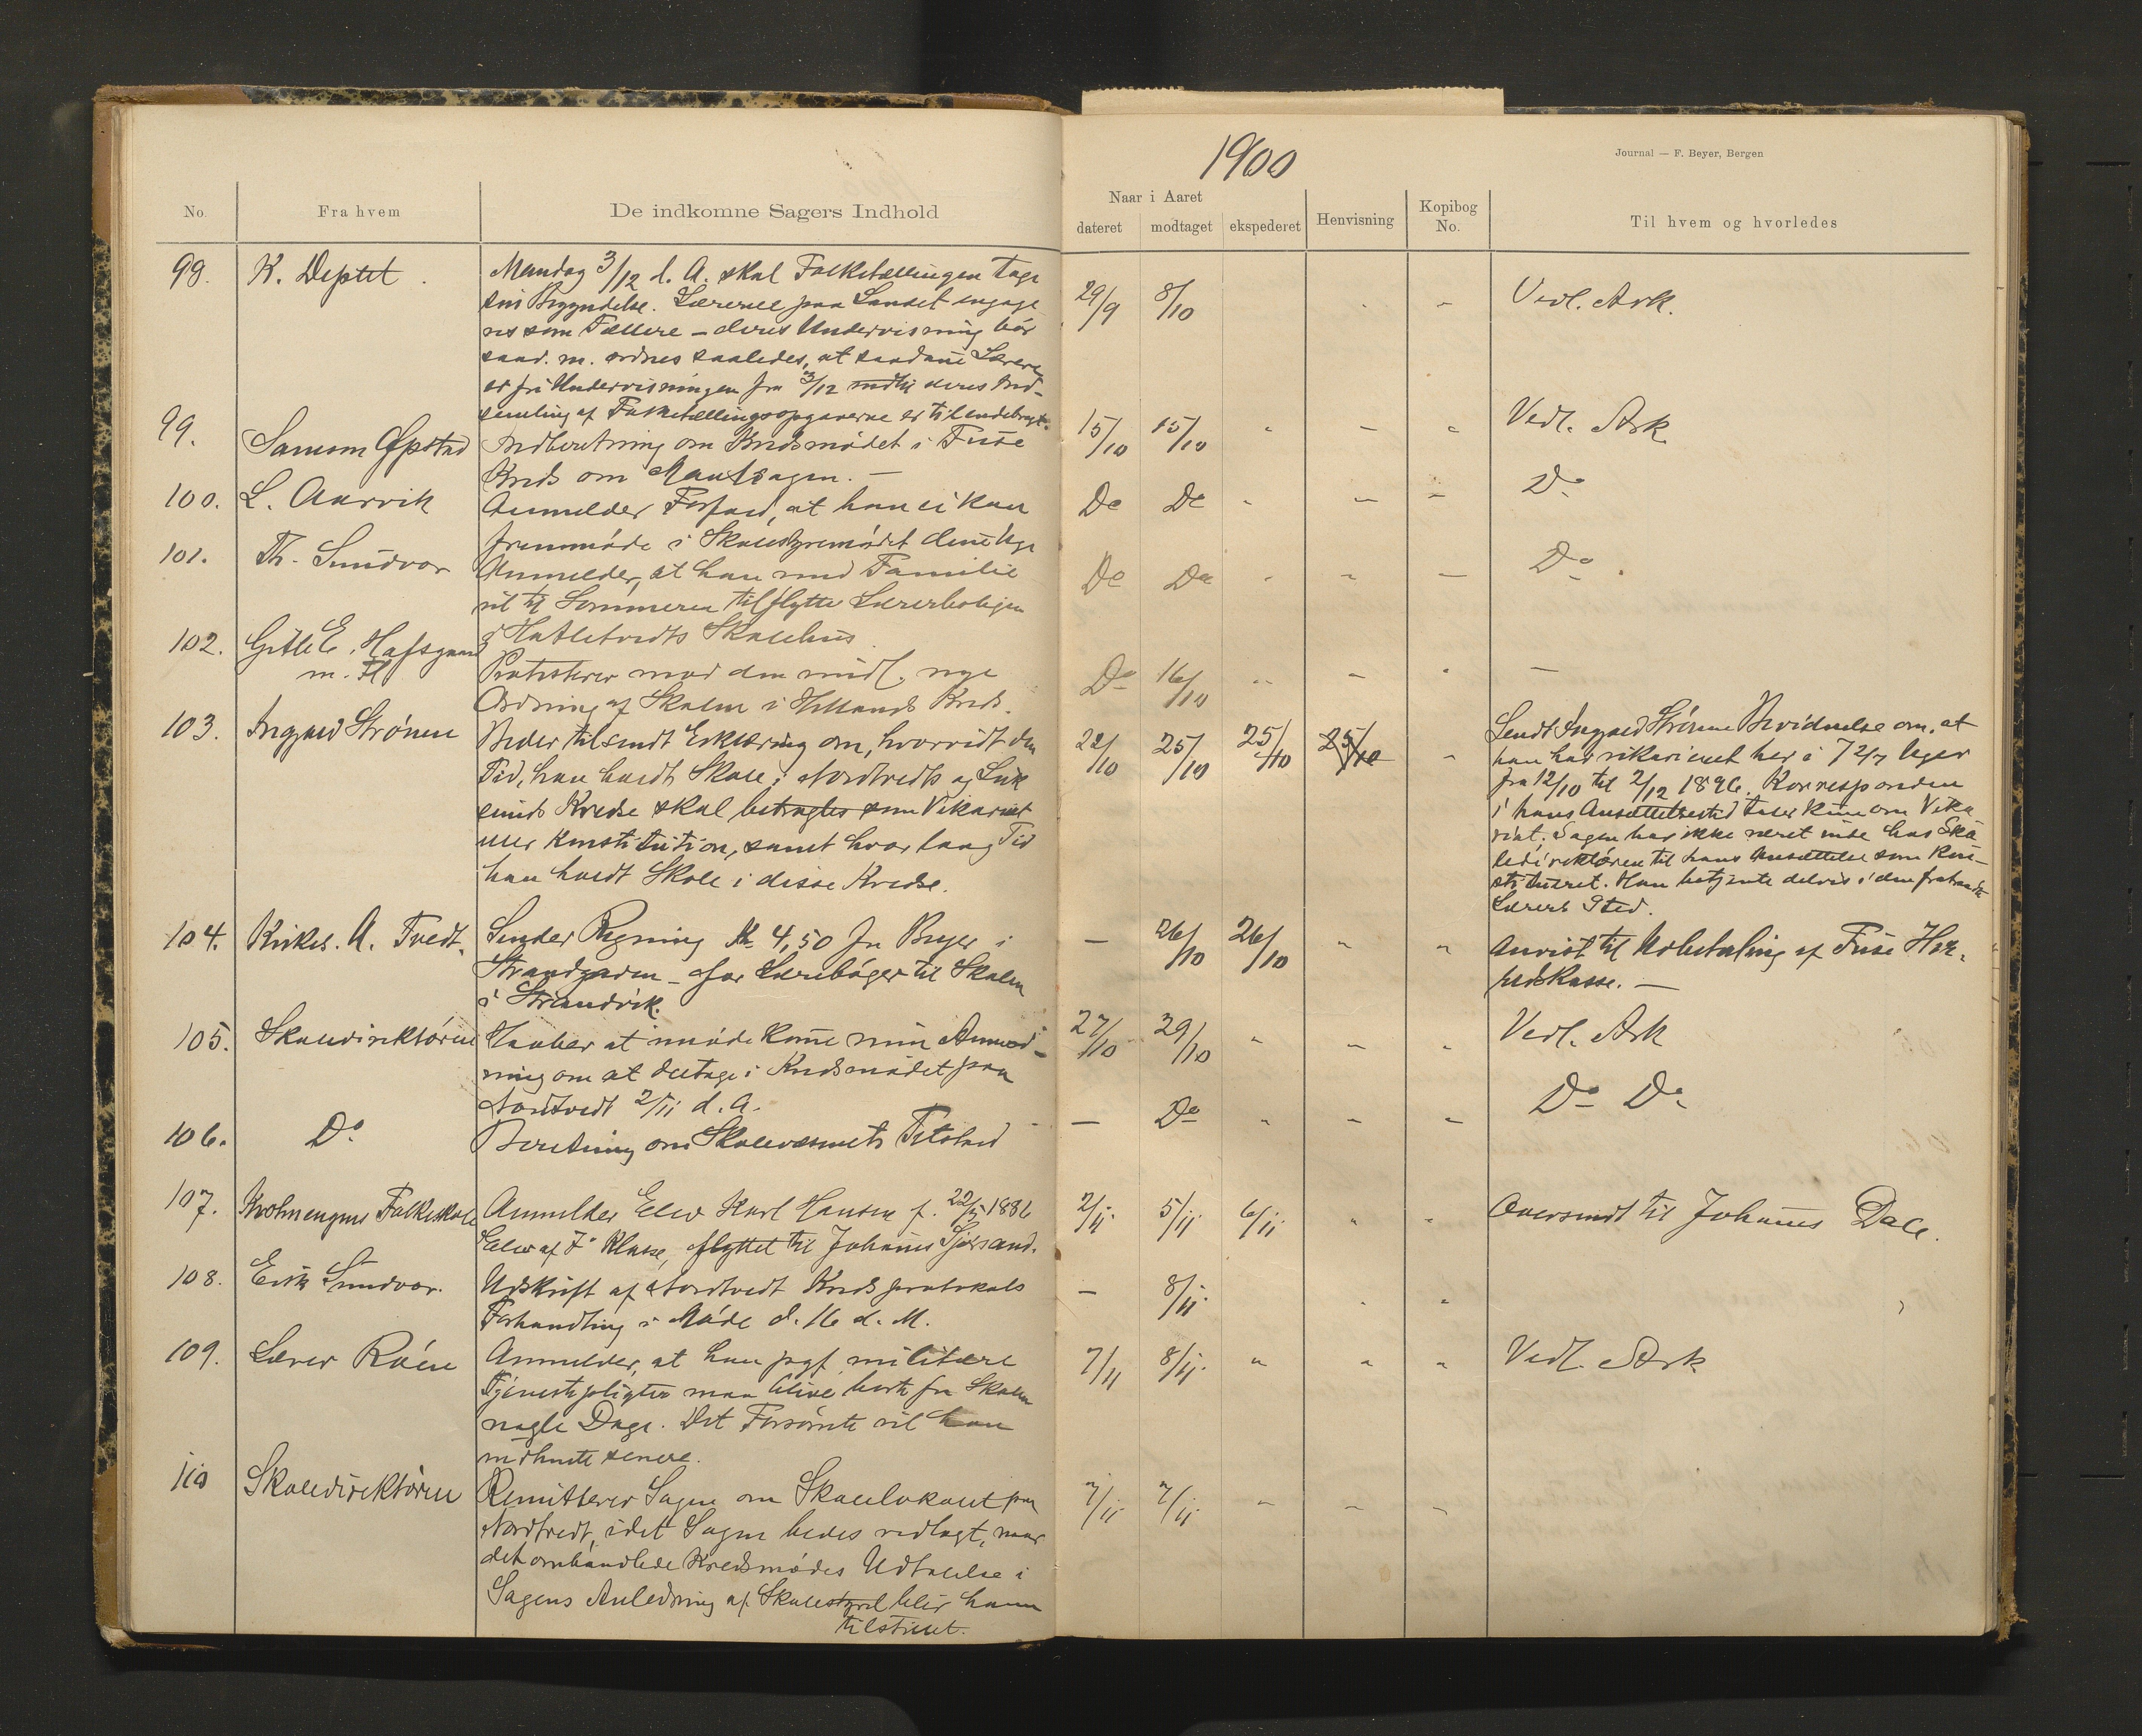 1900
Journal — F. Beyer, Bergen
No. Fra hvem De indkomne Sagers Indhold
Naar i Aaret
dateret modtaget ekspederet Henvisning Kopibog No. Til hvem og hvorledes
98. K. Deptet. Mandag 3/12 d. A. skal Folketællingen tage 29/9 8/10 Vedl. Ark.
sin Begyndelse. Lærerne paa Landet engage
res som Tællere – deres Undervisning bør
saad. m. ordnes saaledes, at saadane Lærere
er fri Undervisningen fra 3/12 indtil deres Ind-
samling af Folketællingsopgaverne er tilendebragt.
99. Samson Øpstad Indberetning om Kredsmødet i Fuse 15/10 15/10 " – " Vedl. Ark.
Kreds om Maalsagen. –
100. L. Aarvik Anmelder Forfald, at han ei kan Do Do " – – Do
fremmøde i Skolestyremødet denne Uge
101. Th. Sundvor Anmelder, at han med Familie Do Do " – – Do.
vil til Sommeren tilflytte Lærerboligen
i Hatletvedts Skolehus
102. Gitle E. Hafsgaard
m. Fl. Protesterer mod den midl. nye Do 16/10 " – " –
Ordning af Skolen i Hillands Kreds.
103. Ingvald Strønen Beder tilsendt Erklæring om, hvorvidt den 22/10 25/10 25/10 25/10 "
Tid, han holdt Skole i Nordtvedts og
sunds Kredse skal betragtes som Vikariat
eller Konstitution, samt hvor lang Tid
han holdt Skole i disse Kredse.
Sendt Ingvald Strønen Bevidnelse om, at
han har vikarieret her i 7 2/7 Uger
fra 12/10 til 2/12 1896. Korresponden
i hans Ansættelsestid taler kun om Vika
riat; Sagen har ikke været inde hos Sko
ledirektøren til hans Ansættelse som kon-
stitueret. Han betjente delvis i den fratraadte
Lærers Sted.
104. Kirkes. A. Tvedt. Sender Regning Kr 4,50 fra Beyer i – 26/10 26/10 " " Anvist til Udbetaling af Fuse Her-
Strandgaden – for Lærebøger til Skolen redskasse. –
i Strandvik.
105. Skoledirektøren Haaber at imødekomme min Anmod- 27/10 29/10 " – " Vedl. Ark
ning om at deltage i Kredsmødet paa
Nordtvedt 2/11 d. A.
106. Do Beretning om Skolevæsenets Tilstand – Do " – – Do Do
107. Krohnengens Folkeskole Anmelder Elev Karl Hansen f. 22/5 1886 2/11 5/11 6/11 " " Oversendt til Johannes Dale.
Elev af 7. Klasse, flyttet til Johannes
108. Erik Sundvor. Udskrift af Nordtvedt Kredsprotokols – 8/11 " "
Forhandling i Møde d. 16 d. M.
109. Lærer Røen Anmelder, at han pgf. militære 7/11 8/11 " " " Vedl. Ark
Tjenestepligter maa blive borte fra Skolen
nogle Dage. Det Forsømte vil han
indhente senere.
110 Skoledirektøren Remitterer Sagen om Skolelokalet paa 7/11 7/11 " – "
Nordtvedt, idet Sagen bedes vedlagt, naar
det omhandlede Kredsmødes Udtalelse i
Sagens Anledning af Skolestyret blir ham
tilstillet.